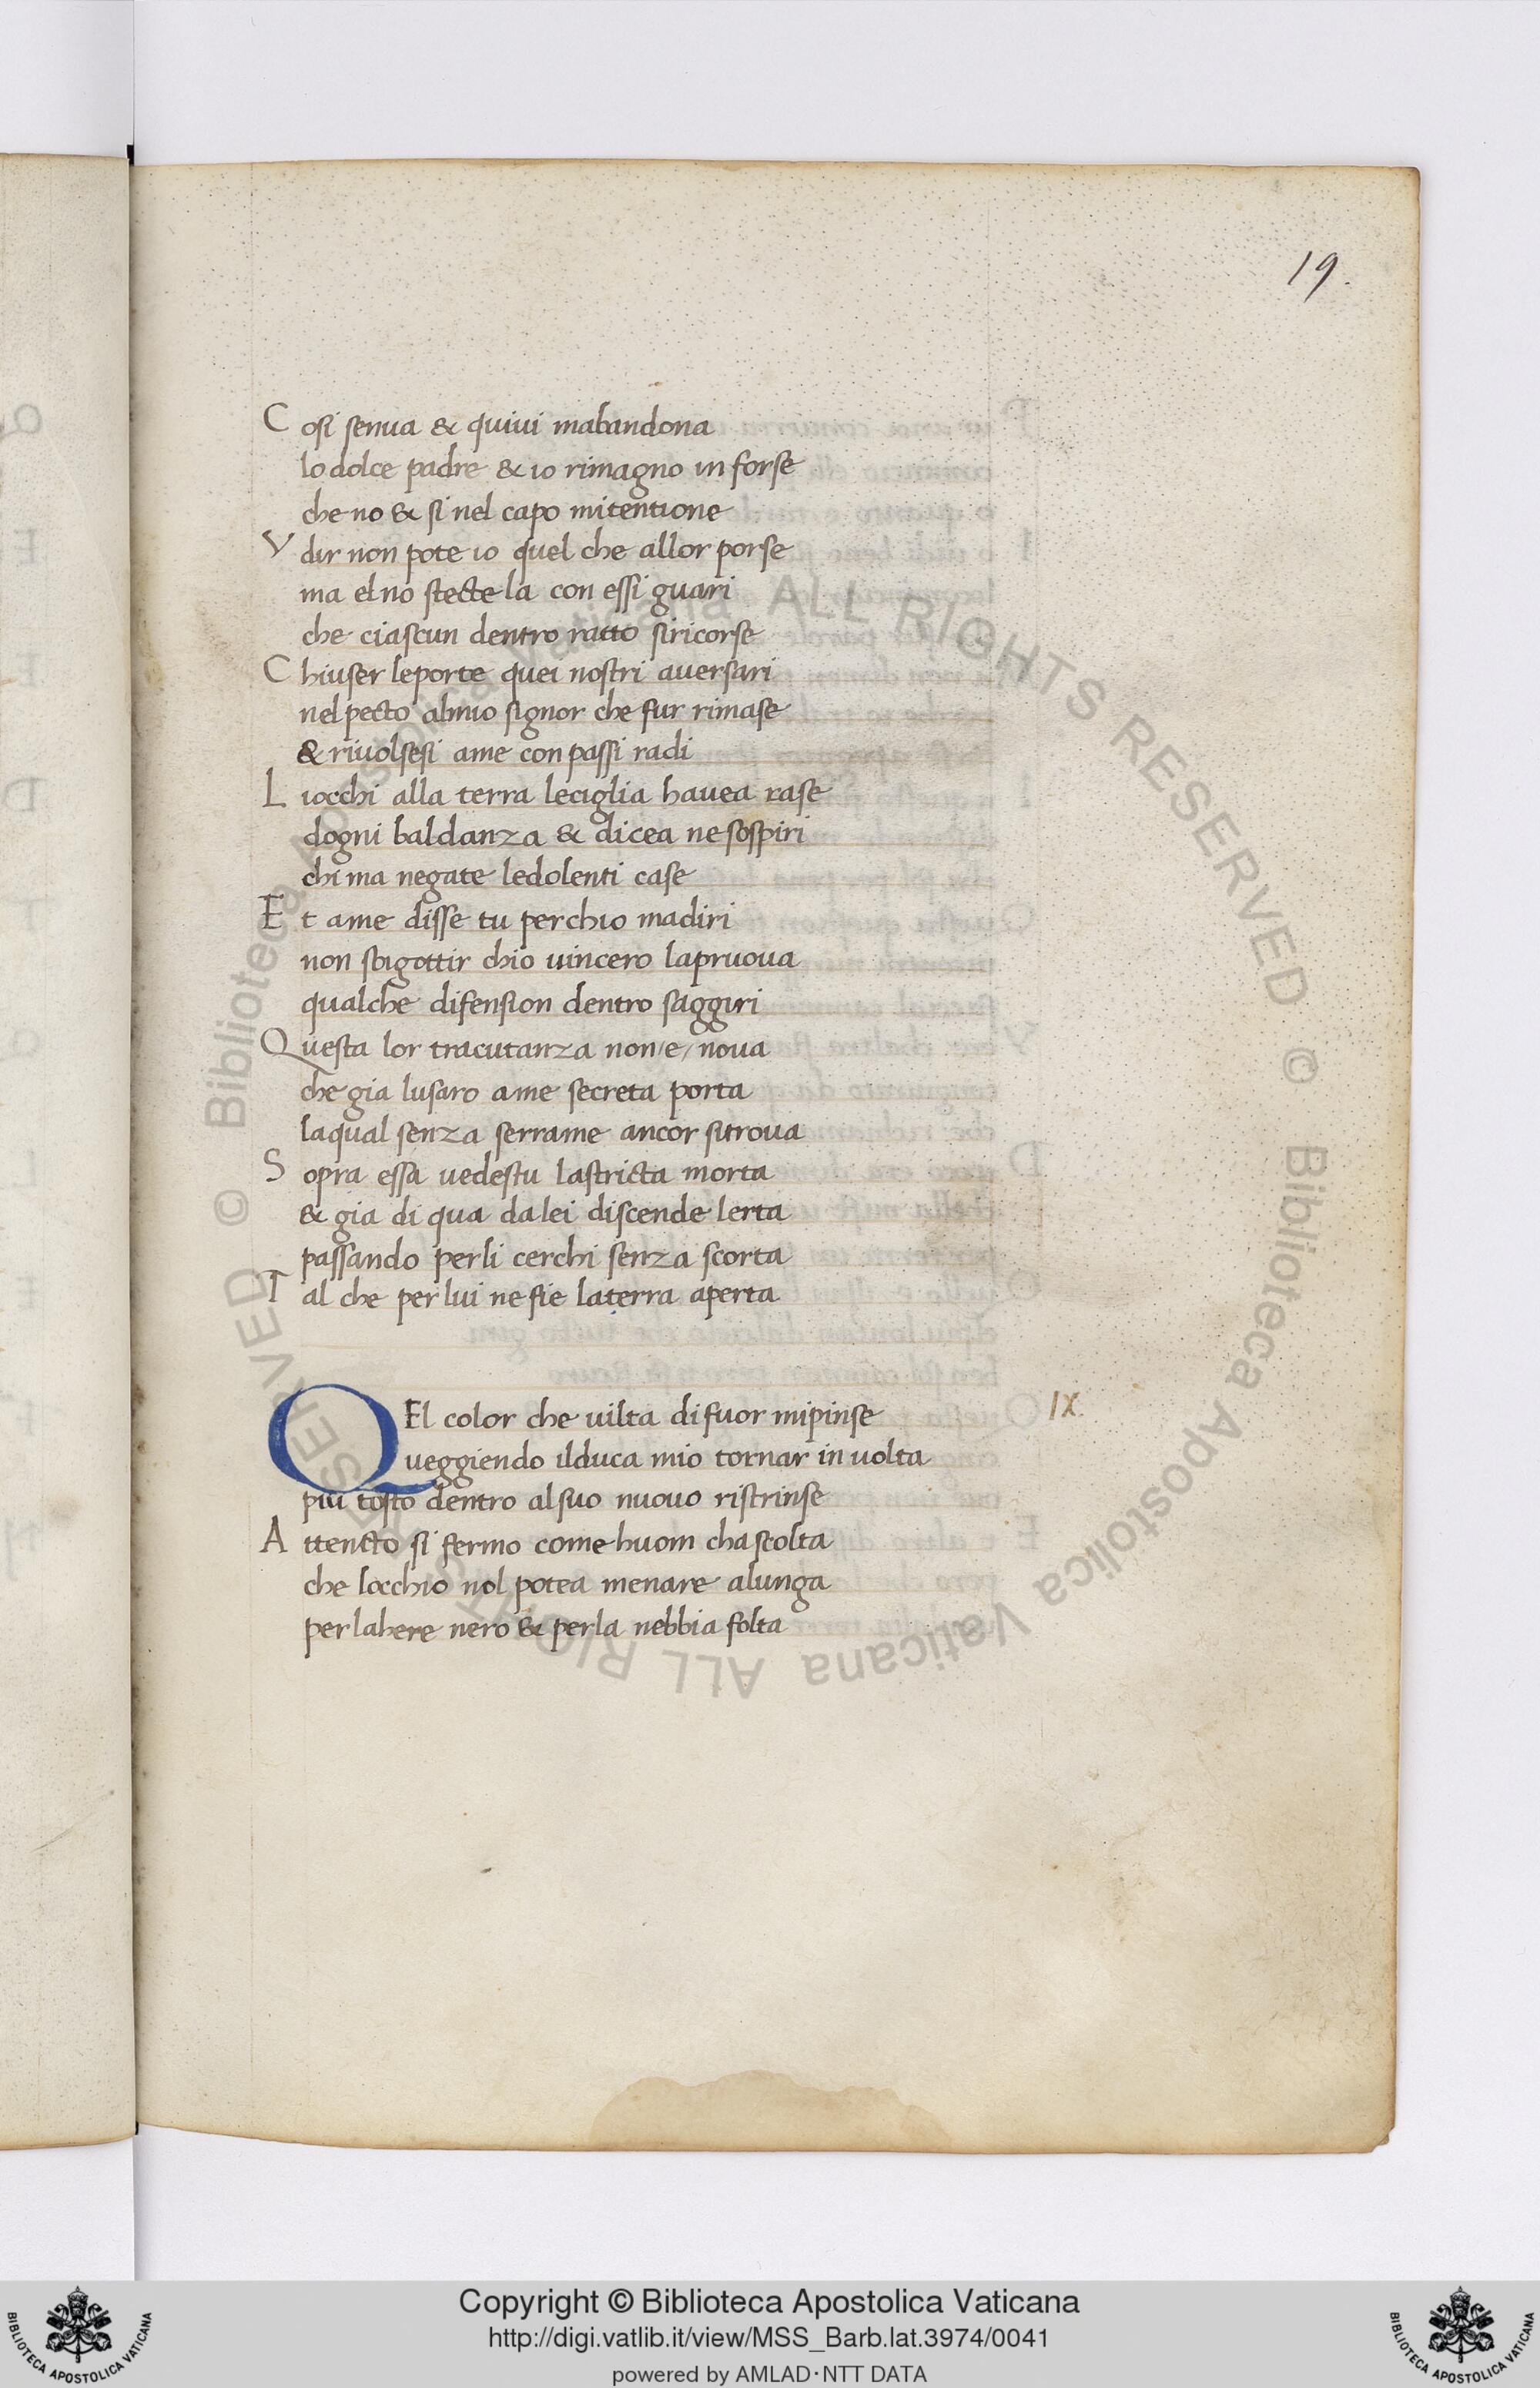 19.
C osi senua & quiui mabandona
lo dolce padre & io rimagno in forse
che no & si nel capo mitentione
V dir non pote io quel che allor porse
ma el no stecte la con essi guari
che ciascun dentro ratto siricorse
C hiuser leporte quei nostri auersari
nel pecto almio signor che fur rimase
& riuolsesi ame con passi radi
L iocchi alla terra leciglia hauea rase
dogni baldanza & dicea ne sospiri
chi ma negate ledolenti case
E t ame disse tu perchio madiri
non sbigottir chio uincero lapruoua
qualche difension dentro saggiri
Q uesta lor tracutanza non/e/ noua
che gia lusaro ame secreta porta
laqual senza serrame ancor sitroua
S opra essa uedestu lastricta morta
& gia di qua dalei discende lerta
passando perli cerchi senza scorta
T al che per lui ne fie laterra aperta
QEl color che uilta di fuor mipinse
ueggiendo ilduca mio tornar in uolta
piu tosto dentro alsuo nuouo ristrinse
A ttencto si fermo come huom chascolta
che locchio nol potea menare alunga
per lahere nero & perla nebbia folta
IX.
© Biblioteca Apostolica Vaticana ALL RIGHTS RESERVED © Biblioteca Apostolica Vaticana ALL RIGHTS RESERVED
Copyright © Biblioteca Apostolica Vaticana
http://digi.vatlib.it/view/MSS_Barb.lat.3974/0041
powered by AMLAD·NTT DATA
BIBLIOTECA APOSTOLICA VATICANA
BIBLIOTECA APOSTOLICA VATICANA